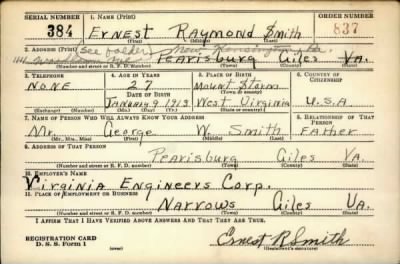 SERIAL NUMBER 1. NAME (Print) ORDER NUMBER
384 ERNEST RAYMOND SMITH 837
(First) (Middle) (Last)
2. ADDRESS (Print) (see folder) New Kensington, Pa.
1141 PEARISBURG GILES VA.
(Number and street or R. F. D. number) (Town) (County) (State)
3. TELEPHONE 4. AGE IN YEARS 5. PLACE OF BIRTH 6. COUNTRY OF CITIZENSHIP
NONE 27 MOUNT STORM
DATE OF BIRTH (Town or county)
JANUARY 9 1913 WEST VIRGINIA U.S.A.
(Exchange) (Number) (Mo.) (Day) (Yr.) (State or country)
7. NAME OF PERSON WHO WILL ALWAYS KNOW YOUR ADDRESS 8. RELATIONSHIP OF THAT PERSON
Mr. George W. Smith Father
(Mr., Mrs., Miss) (First) (Middle) (Last)
9. ADDRESS OF THAT PERSON
PEARISBURG GILES VA.
(Number and street or R. F. D. number) (Town) (County) (State)
10. EMPLOYER'S NAME
VIRGINIA ENGINEERS CORP.
11. PLACE OF EMPLOYMENT OR BUSINESS
NARROWS GILES VA.
(Number and street or R. F. D. number) (Town) (County) (State)
I AFFIRM THAT I HAVE VERIFIED ABOVE ANSWERS AND THAT THEY ARE TRUE.
REGISTRATION CARD
D. S. S. Form 1 (over) Ernest R Smith
(Registrant's signature)